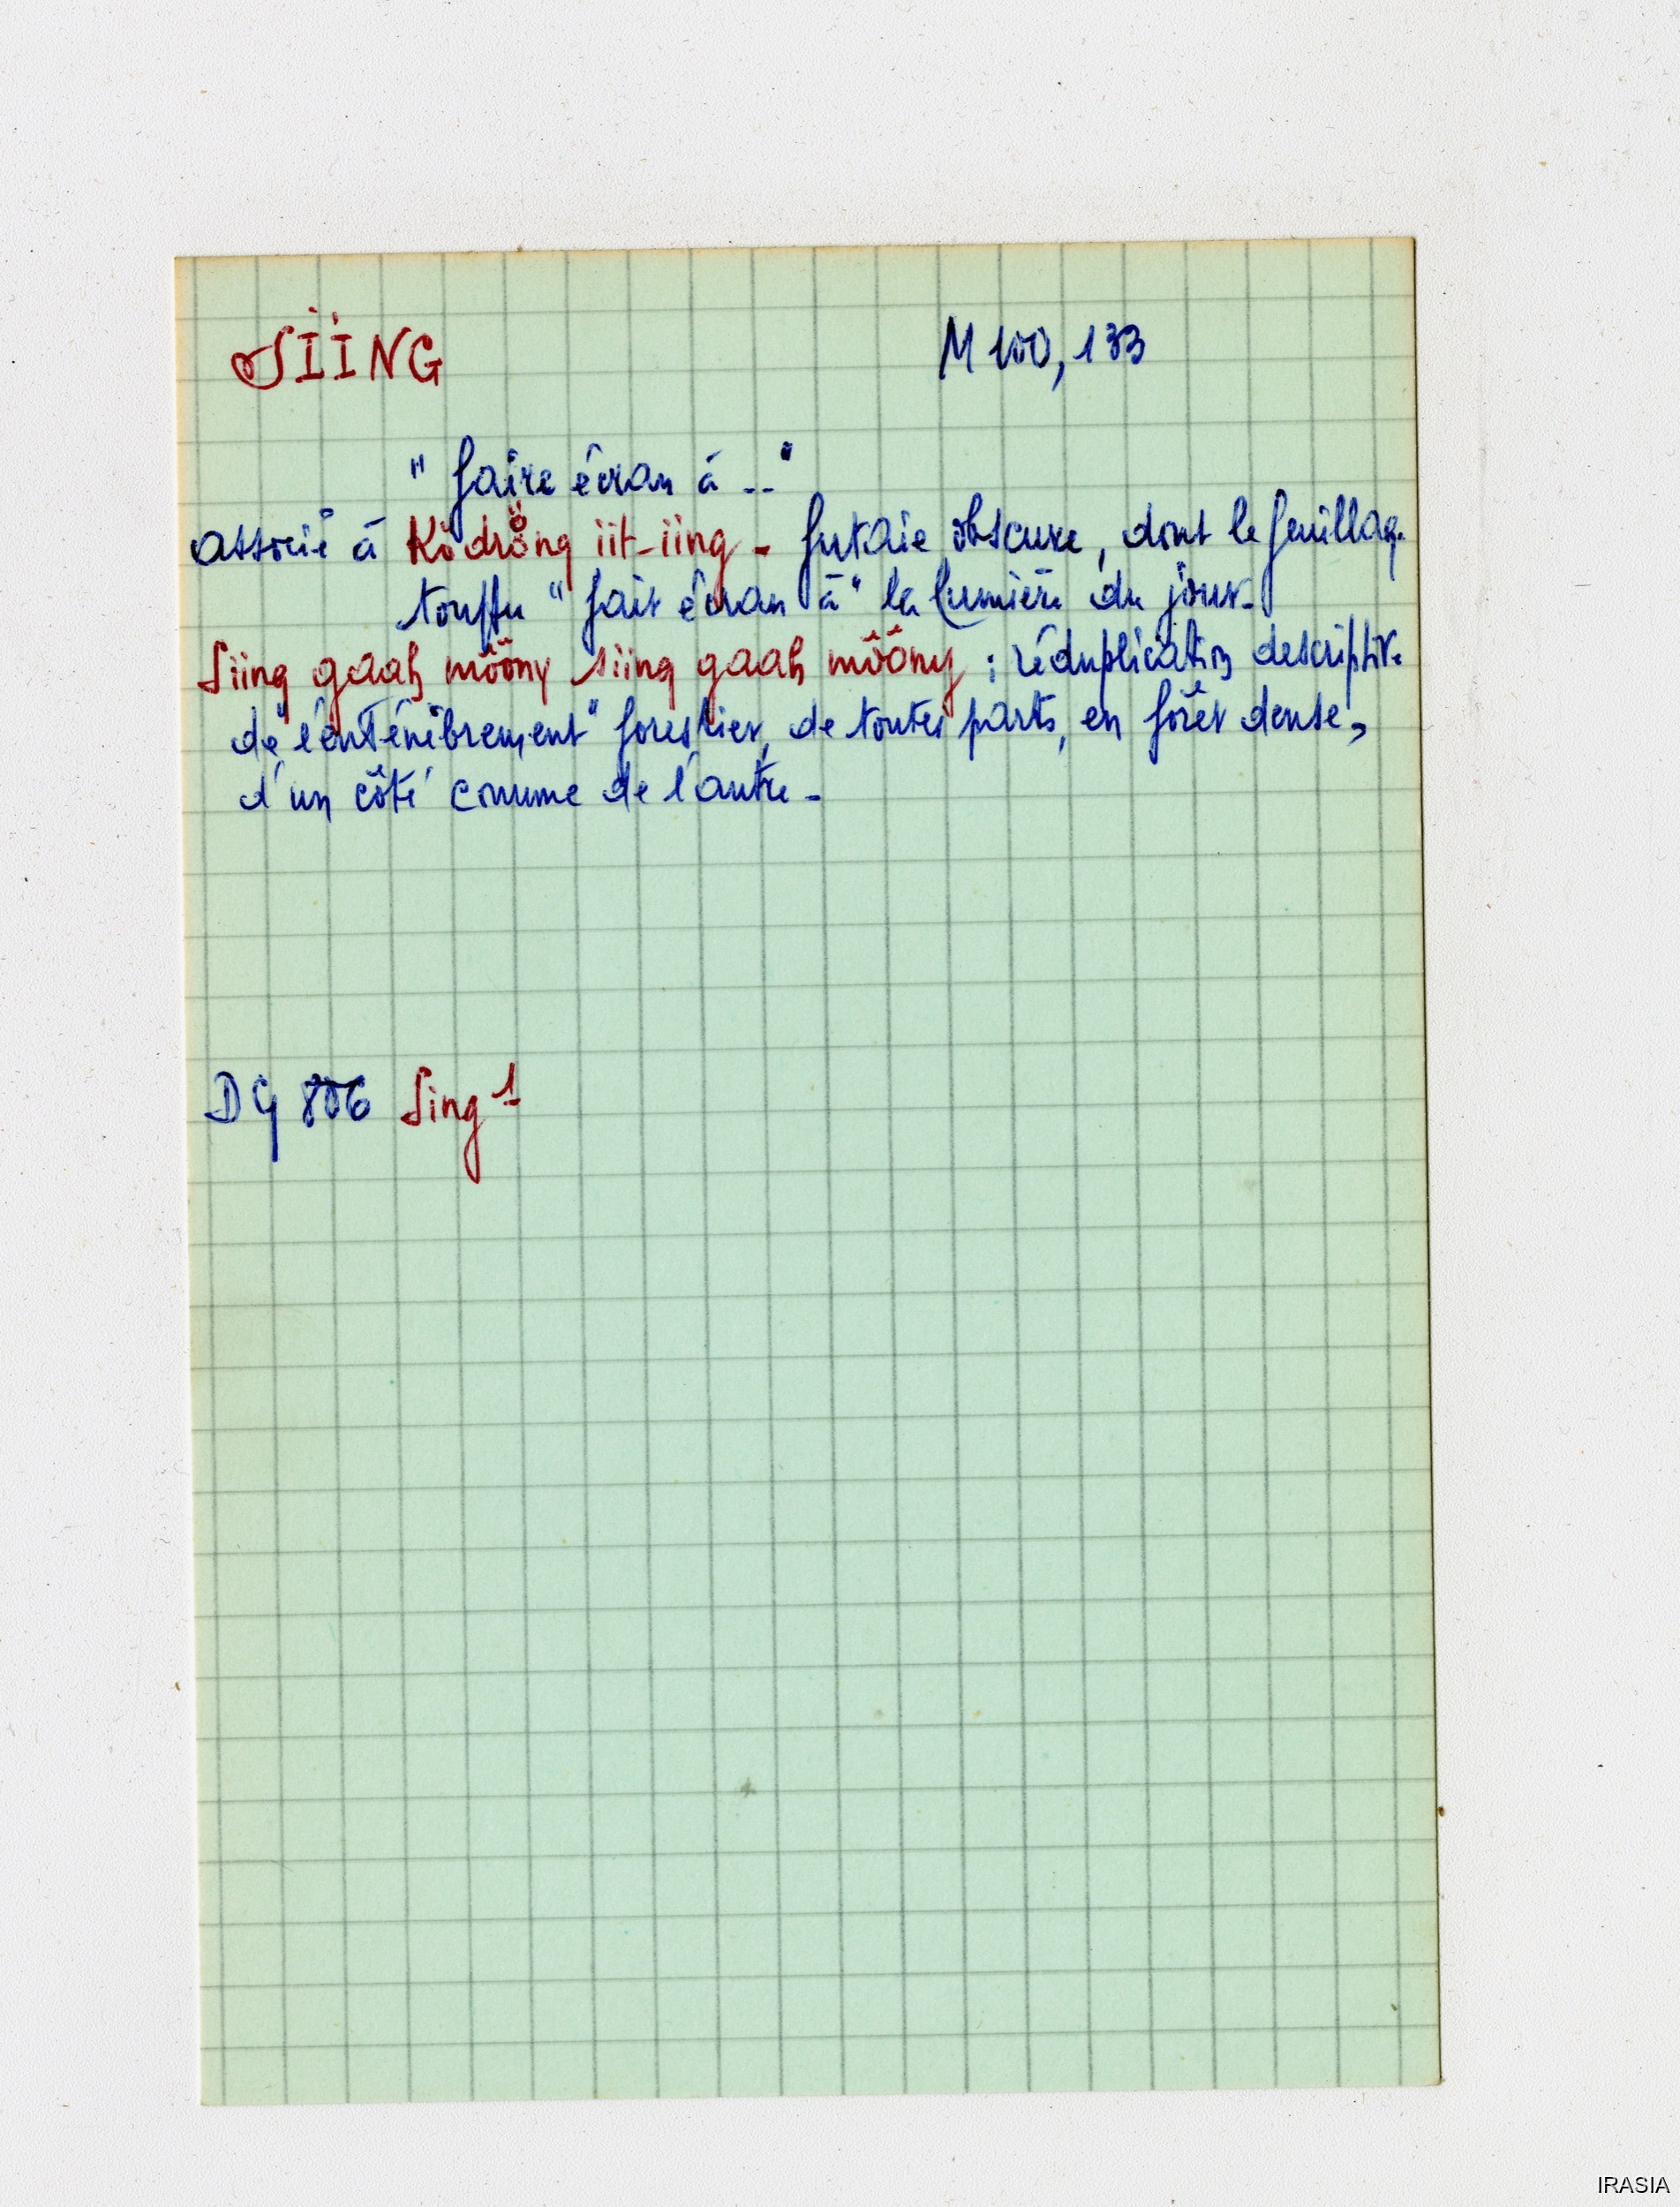 SIING M 100, 133
"faire écran à --"
associé à Ködröng iit-iing - futaie obscure, dont le feuillage
touffu "fait écran à" la lumière du jour-
Siing gaah môôny siing gaah môôny : réduplication descriptive
de "l'enténèbrement" forestier, de toutes parts, en forêt dense,
d'un côté comme de l'autre -
DG 806 Sing 1
IRASIA